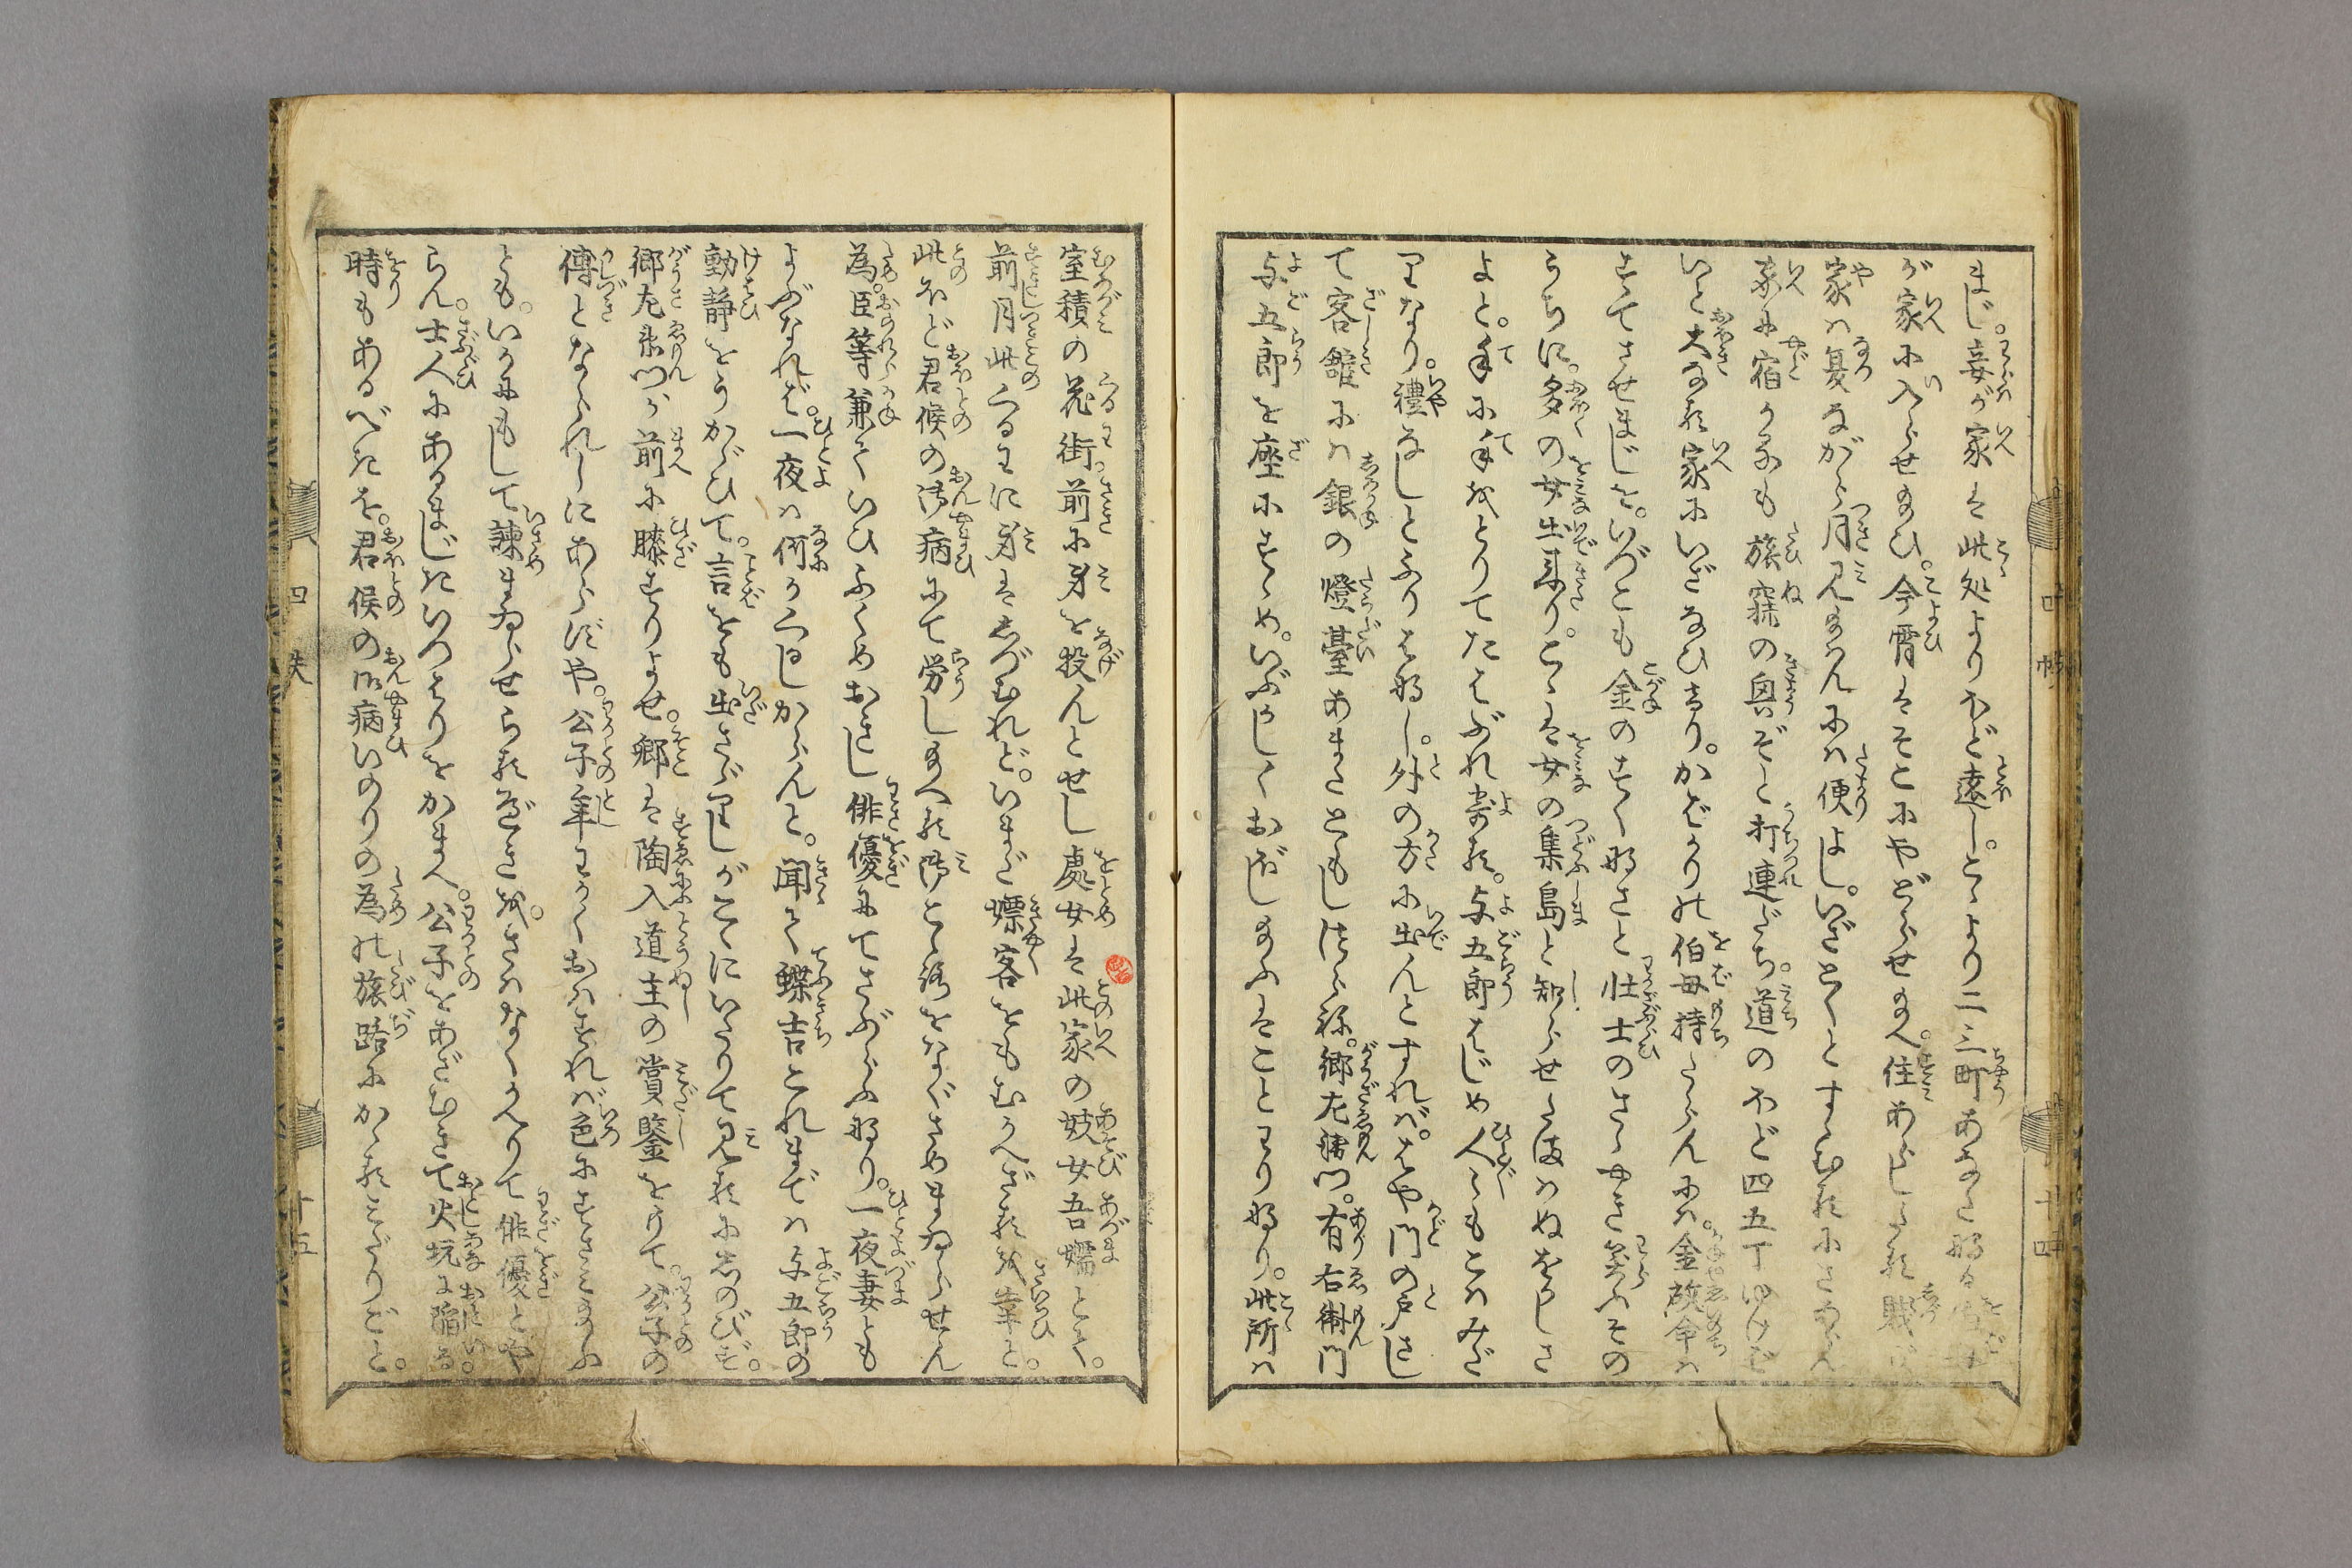 まじ。妾が家は此処よりほど遠し。とゝより二三町あなたなる
が家に入らせ給ひ。今宵はそこにやどらせ給へ。住あらしたる賎が
家は夏ながら月見給はんには便よし。いざとくとすゝむるにさあらん
家に宿かるも旅寐の興ぞと打連だち。道のほど四五丁ゆけば
いと大なる家にいざなひ来り。かばかりの伯母持たらんには。金故命は
すてさせまじを。いづとも金のすくなさと壮士のさゝやき笑ふその
うちに。多の女出来り。こゝは女の集島と知らせたまはぬをかしさ
よと。手に手をとりてたはぶれ寄る。与五郎はじめ人々もこはみだ
りなり。禮なしとふりはなし。外の方に出んとすれば。はや門の戸さし
て客舘には銀の燈臺あまたともしつらね。郷左衛門。有右衛門
与五郎を座にすゝめ。いぶかしくおぼし給ふはことわりなり。此所は
室積の花街。前に身を投んとせし處女は此家の妓女吾嬬とて。
前月此くるわに身はしづむれど。いまだ嫖客をもむかへざるを幸と。
此ほど君侯の御病にて労し給へる御こゝろをなぐさめまゐらせん
為。臣等兼ていひふくめおきし俳優にてさぶらふなり。一夜妻とも
よぶなれば。一夜は何かくるしからんと。聞て鰈吉これまでは与五郎の
動静をうかゞひて。言をも出さゞりしがこゝにいたりて見るにしのびず。
郷左衛門が前に膝すりよせ。郷は陶入道主の賞鑒をうけて。公子の
傅となられしにあらずや。公子年わかくおはすれば色にすさみ給ふ
とも。いかにもして諌まゐらせらるべきを。さはなくかへりて俳優とや
らん。士人にあるまじきいつはりをかまへ。公子をあざむきて火坑に陥る
時もあるべきを。君侯の御病いのりの為の旅路にかゝるみだりごと。
四 帙
十五
十四